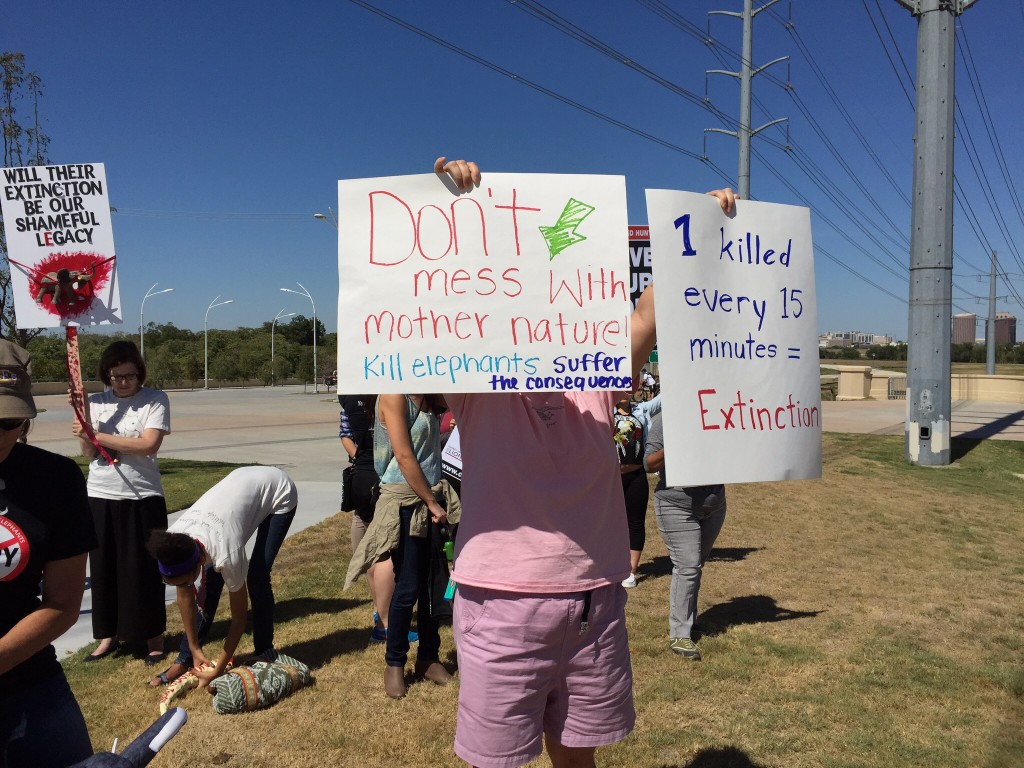 WILL THEIR
EXTINCTION
BE OUR
SHAMEFUL
LEGACY
Don't
mess with
mother nature!
Kill elephants suffer
the consequences
1 killed
every 15
minutes =
Extinction
ELEPHANTS